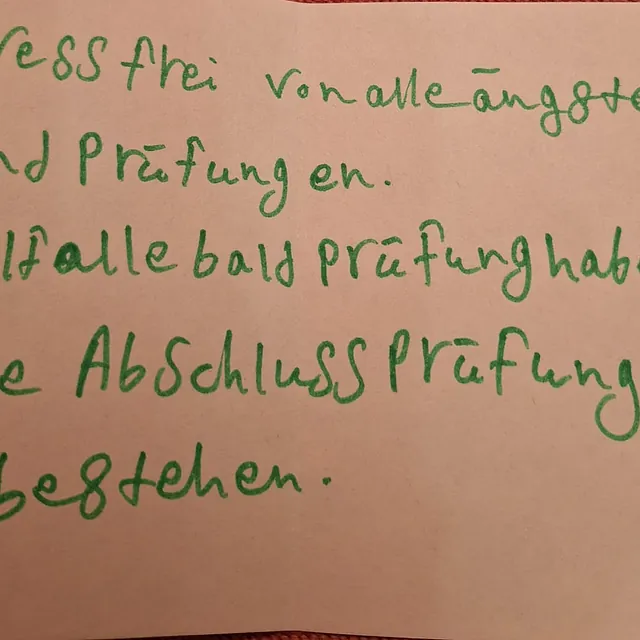 ressfrei von alle ängste
nd Prüfungen.
lf alle bald prüfung hab
e Abschluss Prüfung
bestehen.